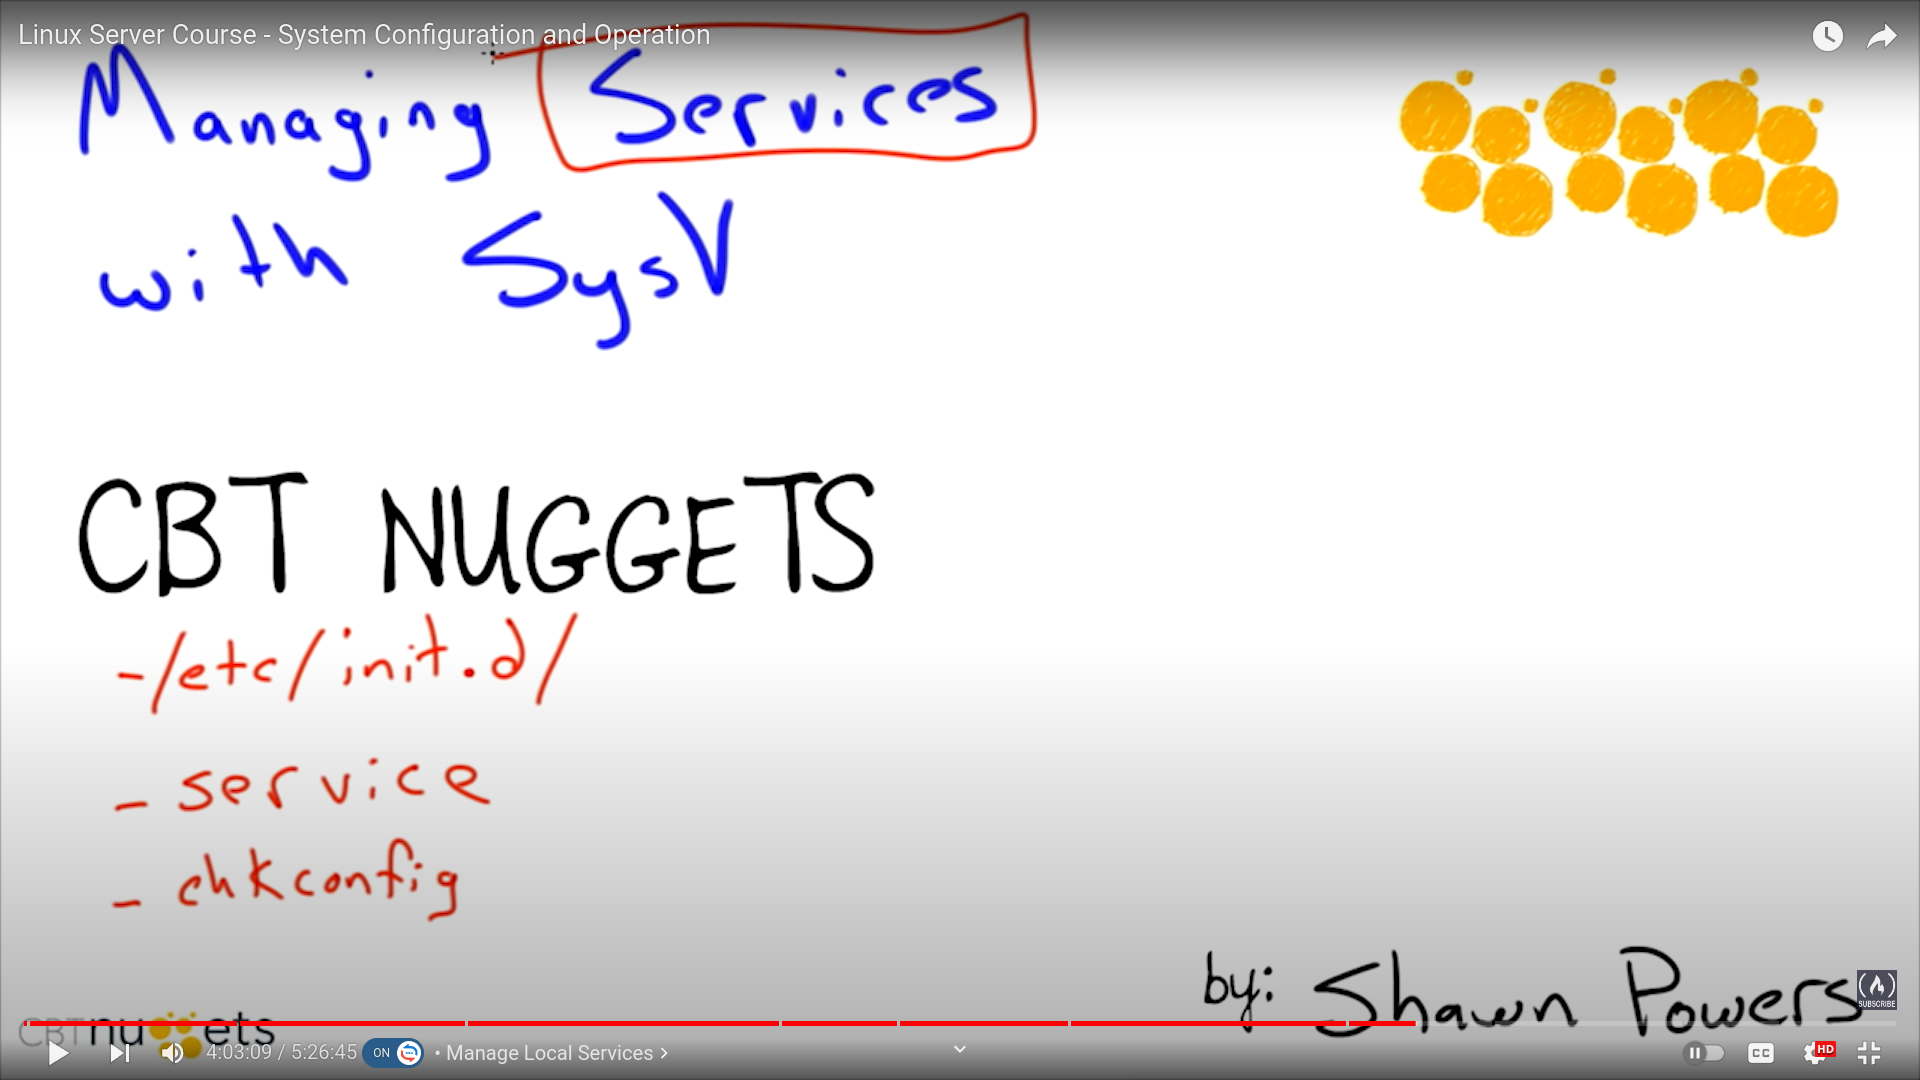 Linux Server Course - System Configuration and Operation
Managing Services
with SysV
CBT NUGGETS
-/etc/init.d/
- service
- chkconfig
by: Shawn Powers
SUBSCRIBE
CBTnuggets
4:03:09 / 5:26:45 ON • Manage Local Services >
CC HD